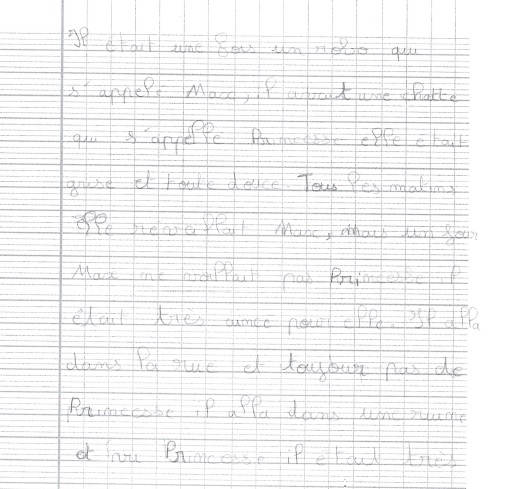 Il était une fois un robo qui
s'appelé Max, il avait une chatte
qui s'appelle Princesse elle était
grise et toute douce. Tous les matins
elle révallait Max, mais un jour
Max ne voillait pas Princesse il
était très pour elle. Il alla
dans la rue et toujour pas de
Princesse il alla dans une
et Princesse il était très